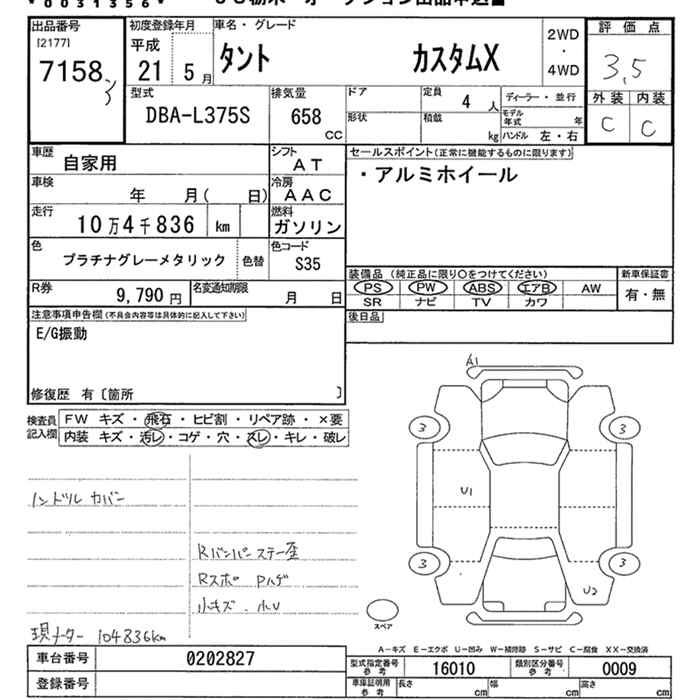 0031356
出品番号 初度登録年月 車名・グレード 2WD 評価点
[2177] 平成
7158 21年 5月 タント カスタムX ・ 4WD 3.5
型式 排気量 ドア 定員 4人 ディーラー・並行 外装 内装
DBA-L375S 658 CC 形状 積載 kg モデル年式 年 C C
ハンドル 左・右
車歴 自家用 シフト AT セールスポイント(正常に機能するものに限ります)
車検 年 月( 日) 冷房 AAC ・アルミホイール
走行 10万4千836 km 燃料 ガソリン
色 プラチナグレーメタリック 色替 色コード S35
装備品 (純正品に限り○をつけてください) 新車保証書
R券 9,790円 名変通知期限 月 日 PS PW ABS エアB AW 有・無
SR ナビ TV カワ
注意事項申告欄(不具合内容等は具体的に記入して下さい) 後日品
E/G振動
修復歴 有〔箇所 〕
検査員記入欄 FW キズ・飛石・ヒビ割・リペア跡・×要
内装 キズ・汚レ・コゲ・穴・スレ・キレ・破レ
A1
3 3
U1
ハンドル カバー
Rバンパーステー歪
Rスポ Pハゲ
小キズ・小U
3 3
U2
スペア
現メーター 104836km
A−キズ E−エクボ U−凹み W−補修跡 S−サビ C−腐食 XX−交換済
車台番号 0202827 型式指定番号 参考 16010 類別区分番号 参考 0009
登録番号 車庫証明用 参考 長さ cm 幅 cm 高さ cm